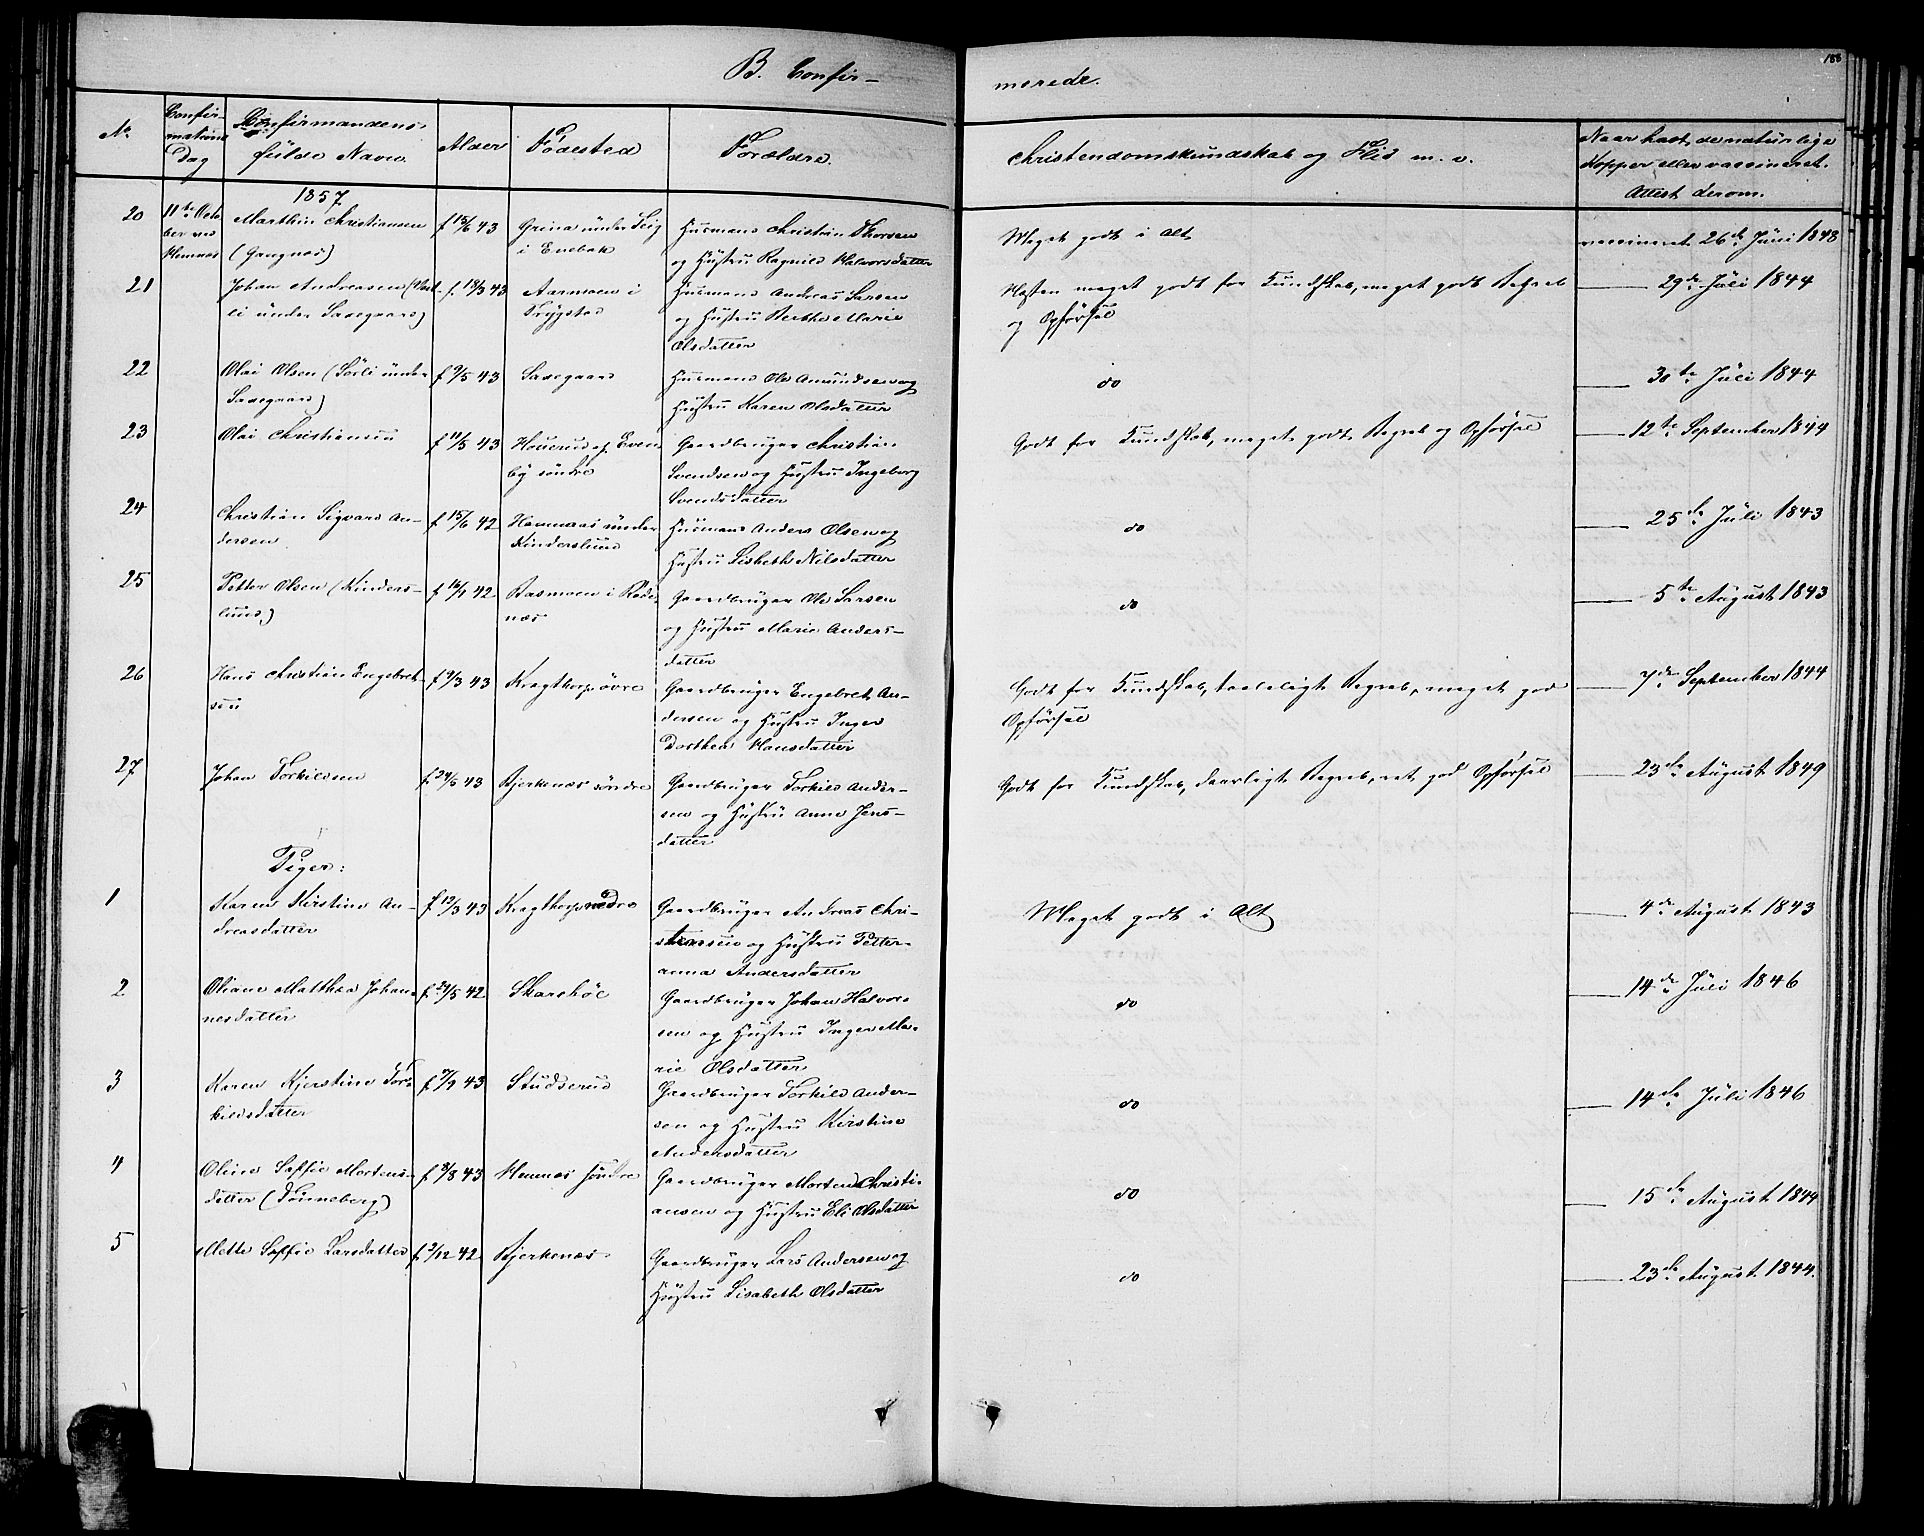 B. Confir-
merede.
188
No
Confir-
mations
Dag
Confirmandens
fulde Navn.
Alder
Fødested
Forældre.
Christendomskundskab og Flid m. v.
Naar havt de naturlige
Kopper eller vaccineret.
Attest derom.
1857
20
11te Octo
ber ved
Hemnæs
Marthin Christiansen
(Gangnæs)
f 43
Grina under
i Enebak
Husmand Christian Thorsen
og Hustru Ragnild Halvorsdatter
Meget godt i Alt
vaccineret 26de Juni 1843
21
Johan Andreasen
li under Saxegaard)
f. 18/3 43
Aarnæsen i
Trygstad
Husmand Andreas Larsen
og Hustru Berthe Marie
Olsdatter
Næsten meget godt for Kundskab, meget godt Begreb
og Opførsel
29de Juli 1844
22
Olai Olsen (Sørli under
Saxegaard)
f 9/5 43
Saxegaard
Husmand Ole Amundsen og
Hustru Karen Olsdatter
do
30te Juli 1844
23
Olai Christiansen
f 11/5 43
af Even
by søndre
Gaardbruger Christian
Svendsen og Hustru Ingeborg
Svendsdatter
Godt for Kundskab, meget godt Begreb og Opførsel
12te September 1844
24
Christian Sigvard An-
dersen
f 15/6 42
Hammaas under
Kinderslund
Husmand Anders Olsen og
Hustru Lisbeth Nilsdatter
do
25de Juli 1843
25
Petter Olsen (Kinders-
lund)
f 16/1 42
Basmoen i Røde-
næs
Gaardbruger Ole Larsen
og Hustru Marie Anders-
datter
do
5te August 1843
26
Hans Christian Engebret-
sen
f 9/3 43
Kragthorp øvre
Gaardbruger Engebret An-
dersen og Hustru Inger
Dorthea Hansdatter
Godt for Kundskab, taaleligt Begreb, meget god
Opførsel
7de September 1844
27
Johan Torkildsen
f. 24/5 43
Bjerkenæs søndre
Gaardbruger Torkild Ander-
sen og Hustru Anne Jens-
datter
Godt for Kundskab, daarligt Begreb, ret god Opførsel
23de August 1849
Piger:
1
Karen Kirstine An-
dreasdatter
f 12/3 43
Kragthorp nedre
Gaardbruger Andreas Chri-
stensen og Hustru Petter-
anna Andersdatter
Meget godt i Alt
4de August 1843
2
Oliane Matthea Johan-
nesdatter
f. 24/5 42
Skarshöe
Gaardbruger Johan Halvor-
sen og Hustru Inger Ma-
rie Olsdatter
do
14de Juli 1846
3
Karen Kjerstine Tor-
kildsdatter
f. 7/9 43
Studserud
Gaardbruger Torkild Ander-
sen og Hustru Kirstine
Andersdatter
do
14de Juli 1846
4
Oline Soffie Mortens-
datter (Tønneberg)
f. 8/8 43
Hemnæs søndre
Gaardbruger Morten Christi-
ansen og Hustru Eli Olsdatter
do
15de August 1844
5
Mette Soffie Larsdatter
f. 2/12 42
Bjerkenæs
Gaardbruger Lars Andersen og
Hustru Lisabeth Olsdatter
do
23de August 1844.